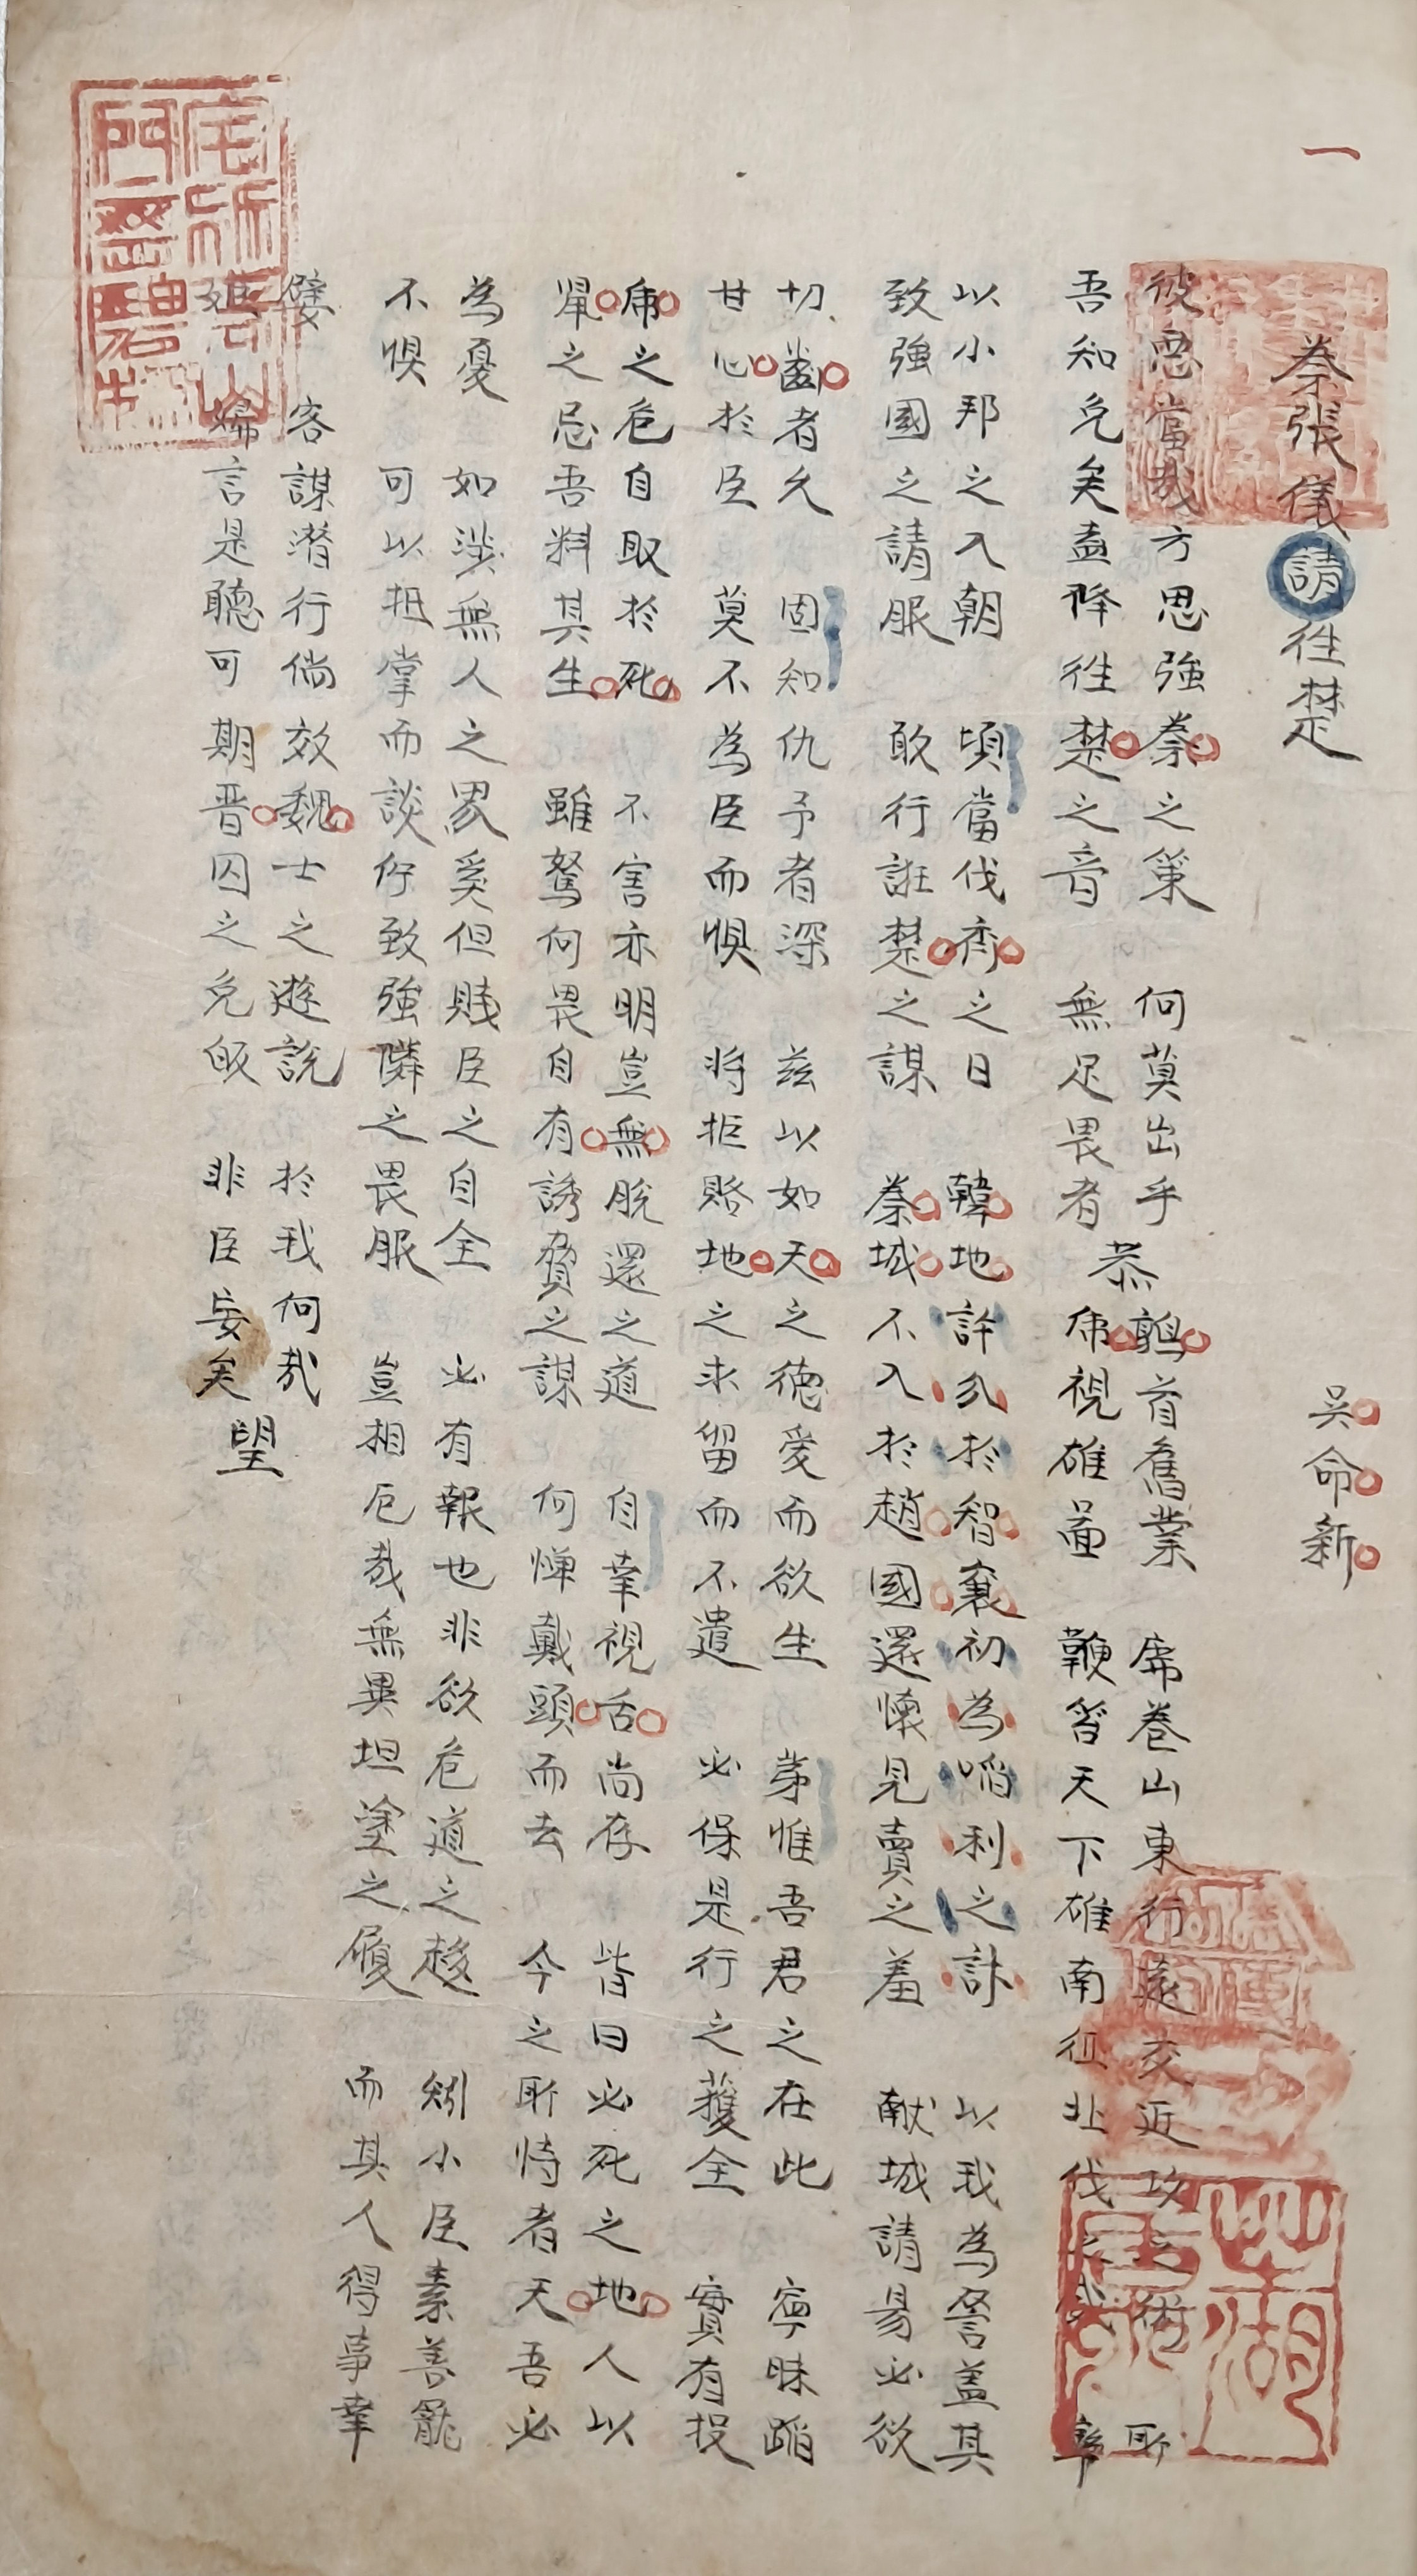 一
秦張儀請徃楚
吳命新
彼惡當哉方思強秦之策 何莫出乎 鶉首舊業 席卷山東行遠交近攻之術 所
吾知免矣盍降徃楚之音 無足畏者 虎視雄啚 鞭笞天下雄南征北伐之威 寧
恭
以小邦之入朝 頃當伐齊之日 韓地許分於智襄初為啗利之計 以我為詧盖其
致強國之請服 敢行誑楚之謀 秦城不入於趙國還懷見賣之羞 献城請易必欲
切齒者久 固知仇予者深 兹以如天之德爱而欲生 茅惟吾君之在此 寧昧蹈
甘心於臣 莫不為臣而惧 将拒賂地之求留而不遣 必保是行之獲全 實有投
虎之危自取於死 不害亦明豈無脫還之道 自幸視舌尚存 皆曰必死之地人以
之忌吾料其生 雖駑何畏自有誘賁之謀 何憚戴頭而去 今之所恃者天吾必
為憂 如涉無人之界奚但賤臣之自全 必有報也非欲危道之趍 矧小臣素善寵
不惧 可以抵掌而談佇致強隣之畏服 豈相厄哉無異坦塗之履 而其人得事幸
嬖 客謀潜行倘效魏士之遊説 於我何哉
姬 婦言是聽可期晋囚之免皈 非臣妄矣
望